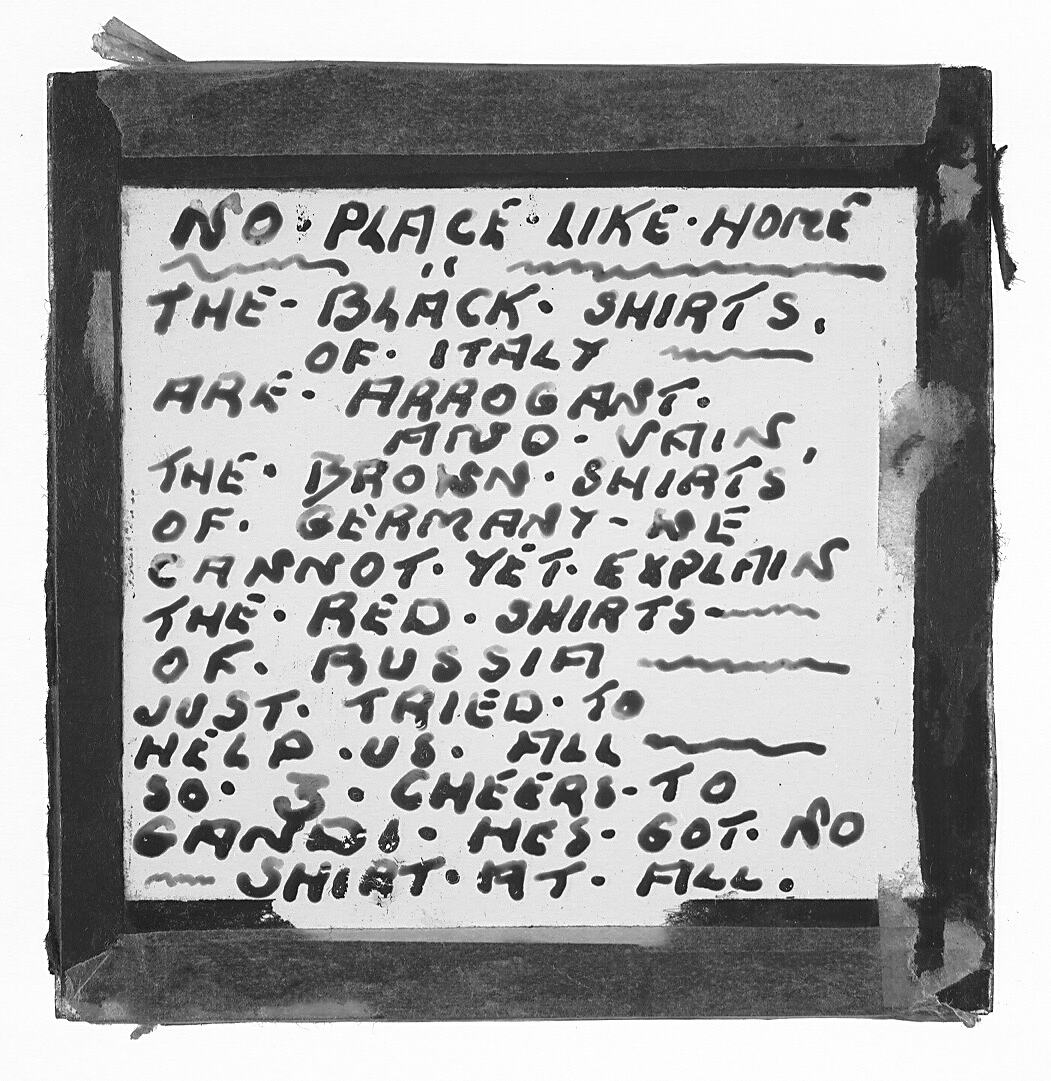 NO · PLACE · LIKE · HOME
"
THE - BLACK · SHIRTS.
OF · ITALY
ARE · ARROGANT.
AND · VAIN,
THE · BROWN · SHIRTS
OF · GERMANY - WE
CANNOT · YET · EXPLAIN
THE · RED · SHIRTS -
OF · RUSSIA
JUST · TRIED · TO
HELP · US · ALL
SO · 3 · CHEERS - TO
GANDI · HES · GOT · NO
SHIRT · AT · ALL.